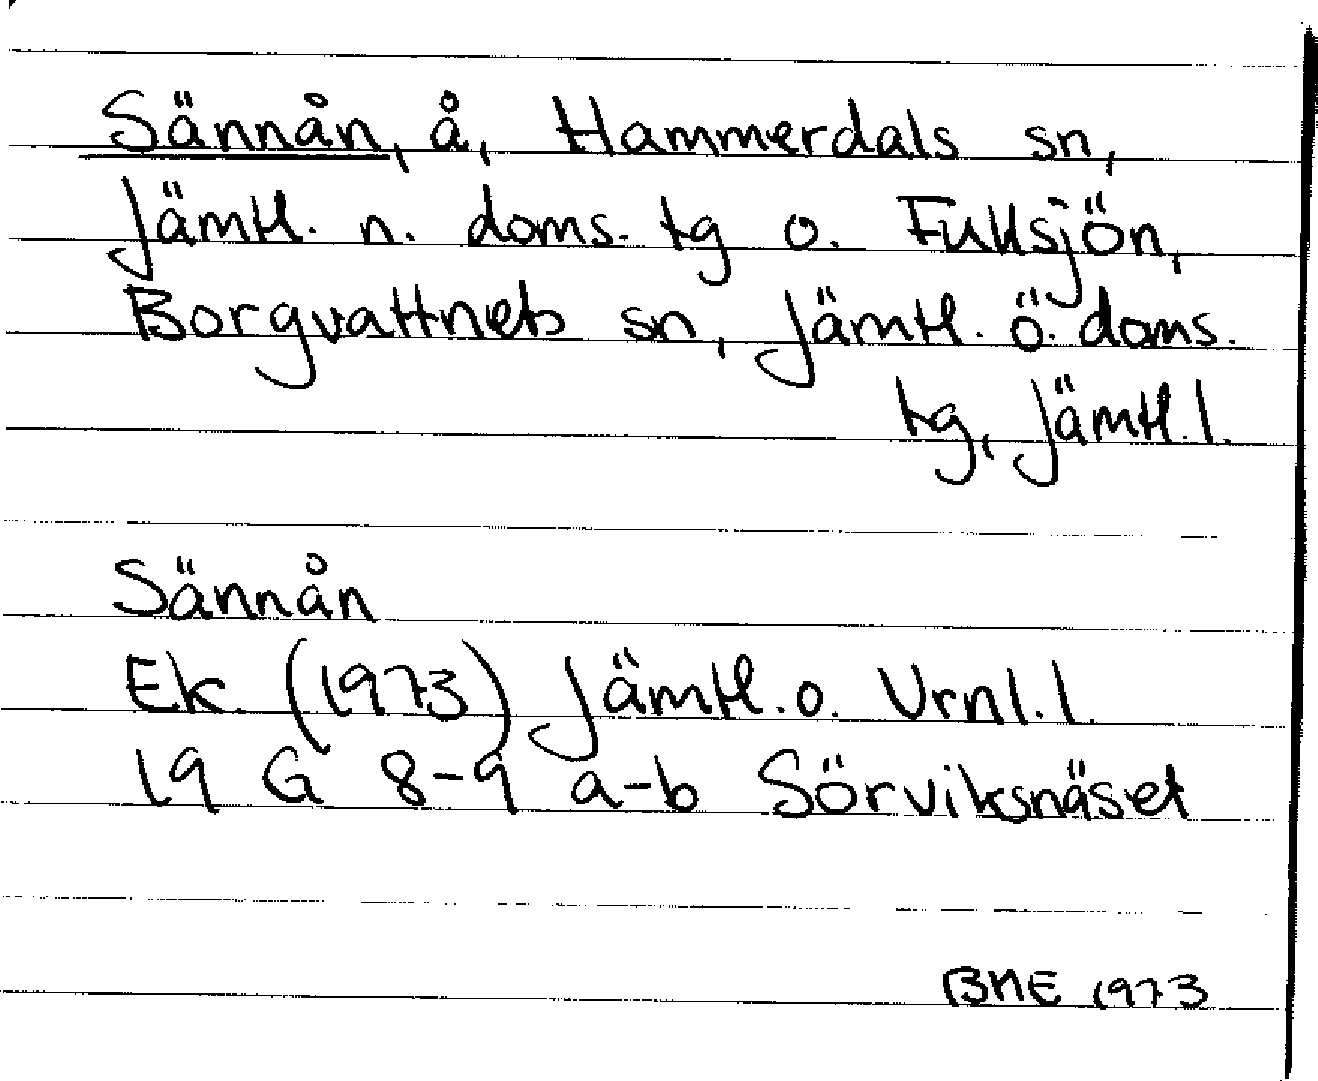 Sännån, å, Hammerdals sn,
Jämtl. n. doms. tg o. Fullsjön,
Borgvattnets sn, Jämtl. ö. doms.
tg, Jämtl. l.
Sännån
Ek. (1973) Jämtl. o. Vrnl. l.
19 G 8-9 a-b Sörviksnäset
BME 1973